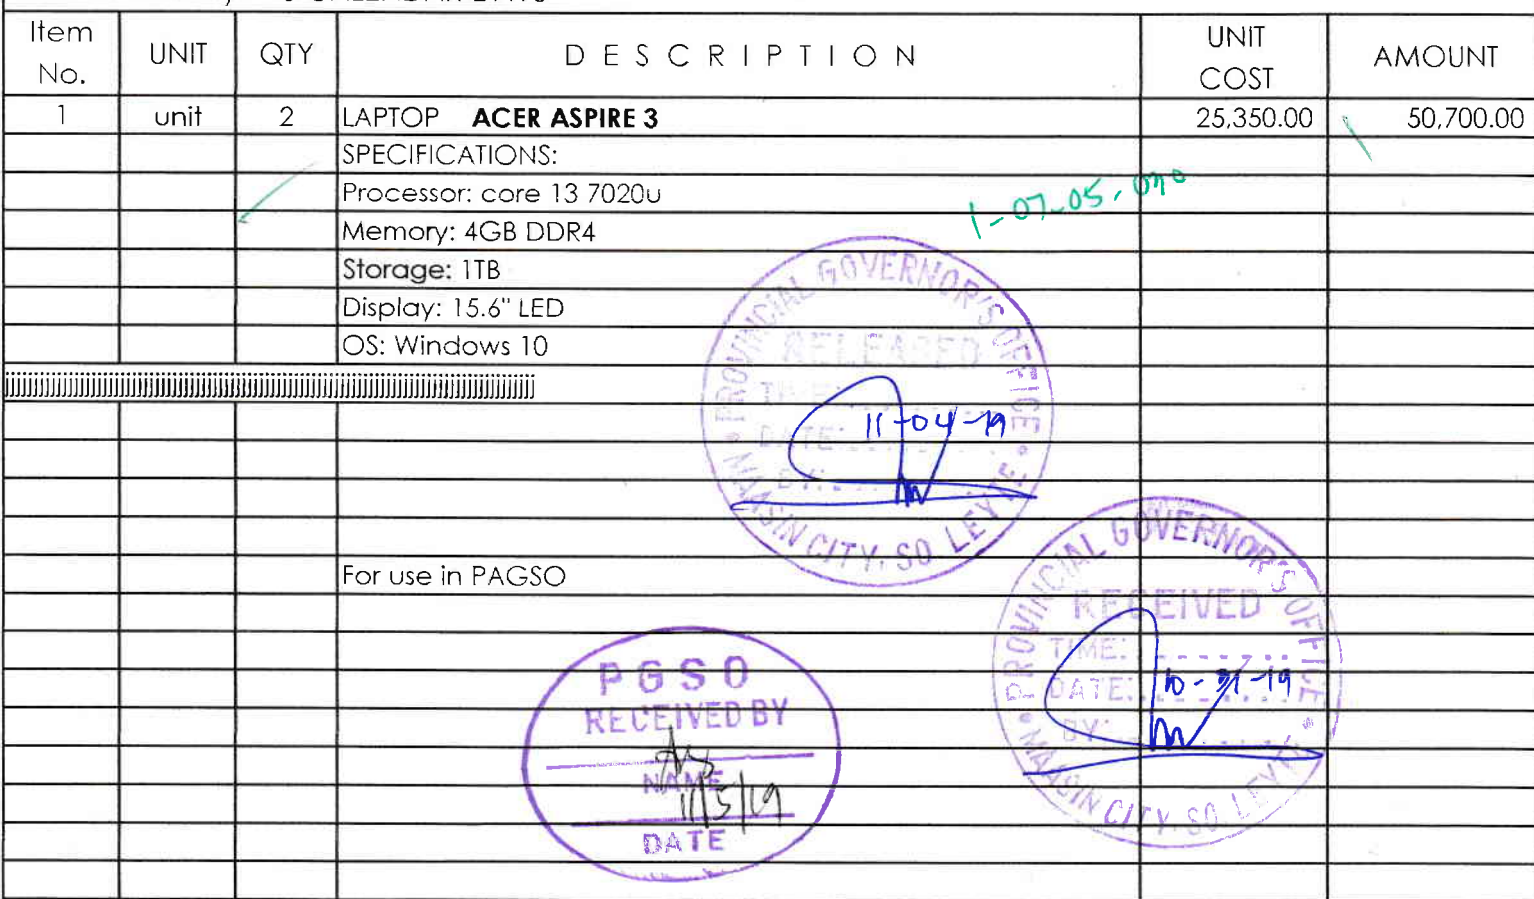 CALENDAR DAYS
Item No. UNIT QTY DESCRIPTION UNIT COST AMOUNT
1 unit 2 LAPTOP ACER ASPIRE 3 25,350.00 50,700.00
SPECIFICATIONS:
Processor: core 13 7020u
1-07-05-030
Memory: 4GB DDR4
Storage: 1TB
Display: 15.6" LED
OS: Windows 10
PROVINCIAL GOVERNOR'S OFFICE
RELEASED
TIME:
DATE: 11-04-19
BY:
MAASIN CITY, SO. LEYTE
For use in PAGSO
PROVINCIAL GOVERNOR'S OFFICE
RECEIVED
TIME:
DATE: 10-31-19
BY:
MAASIN CITY, SO. LEYTE
PGSO
RECEIVED BY
NAME
11/5/19
DATE